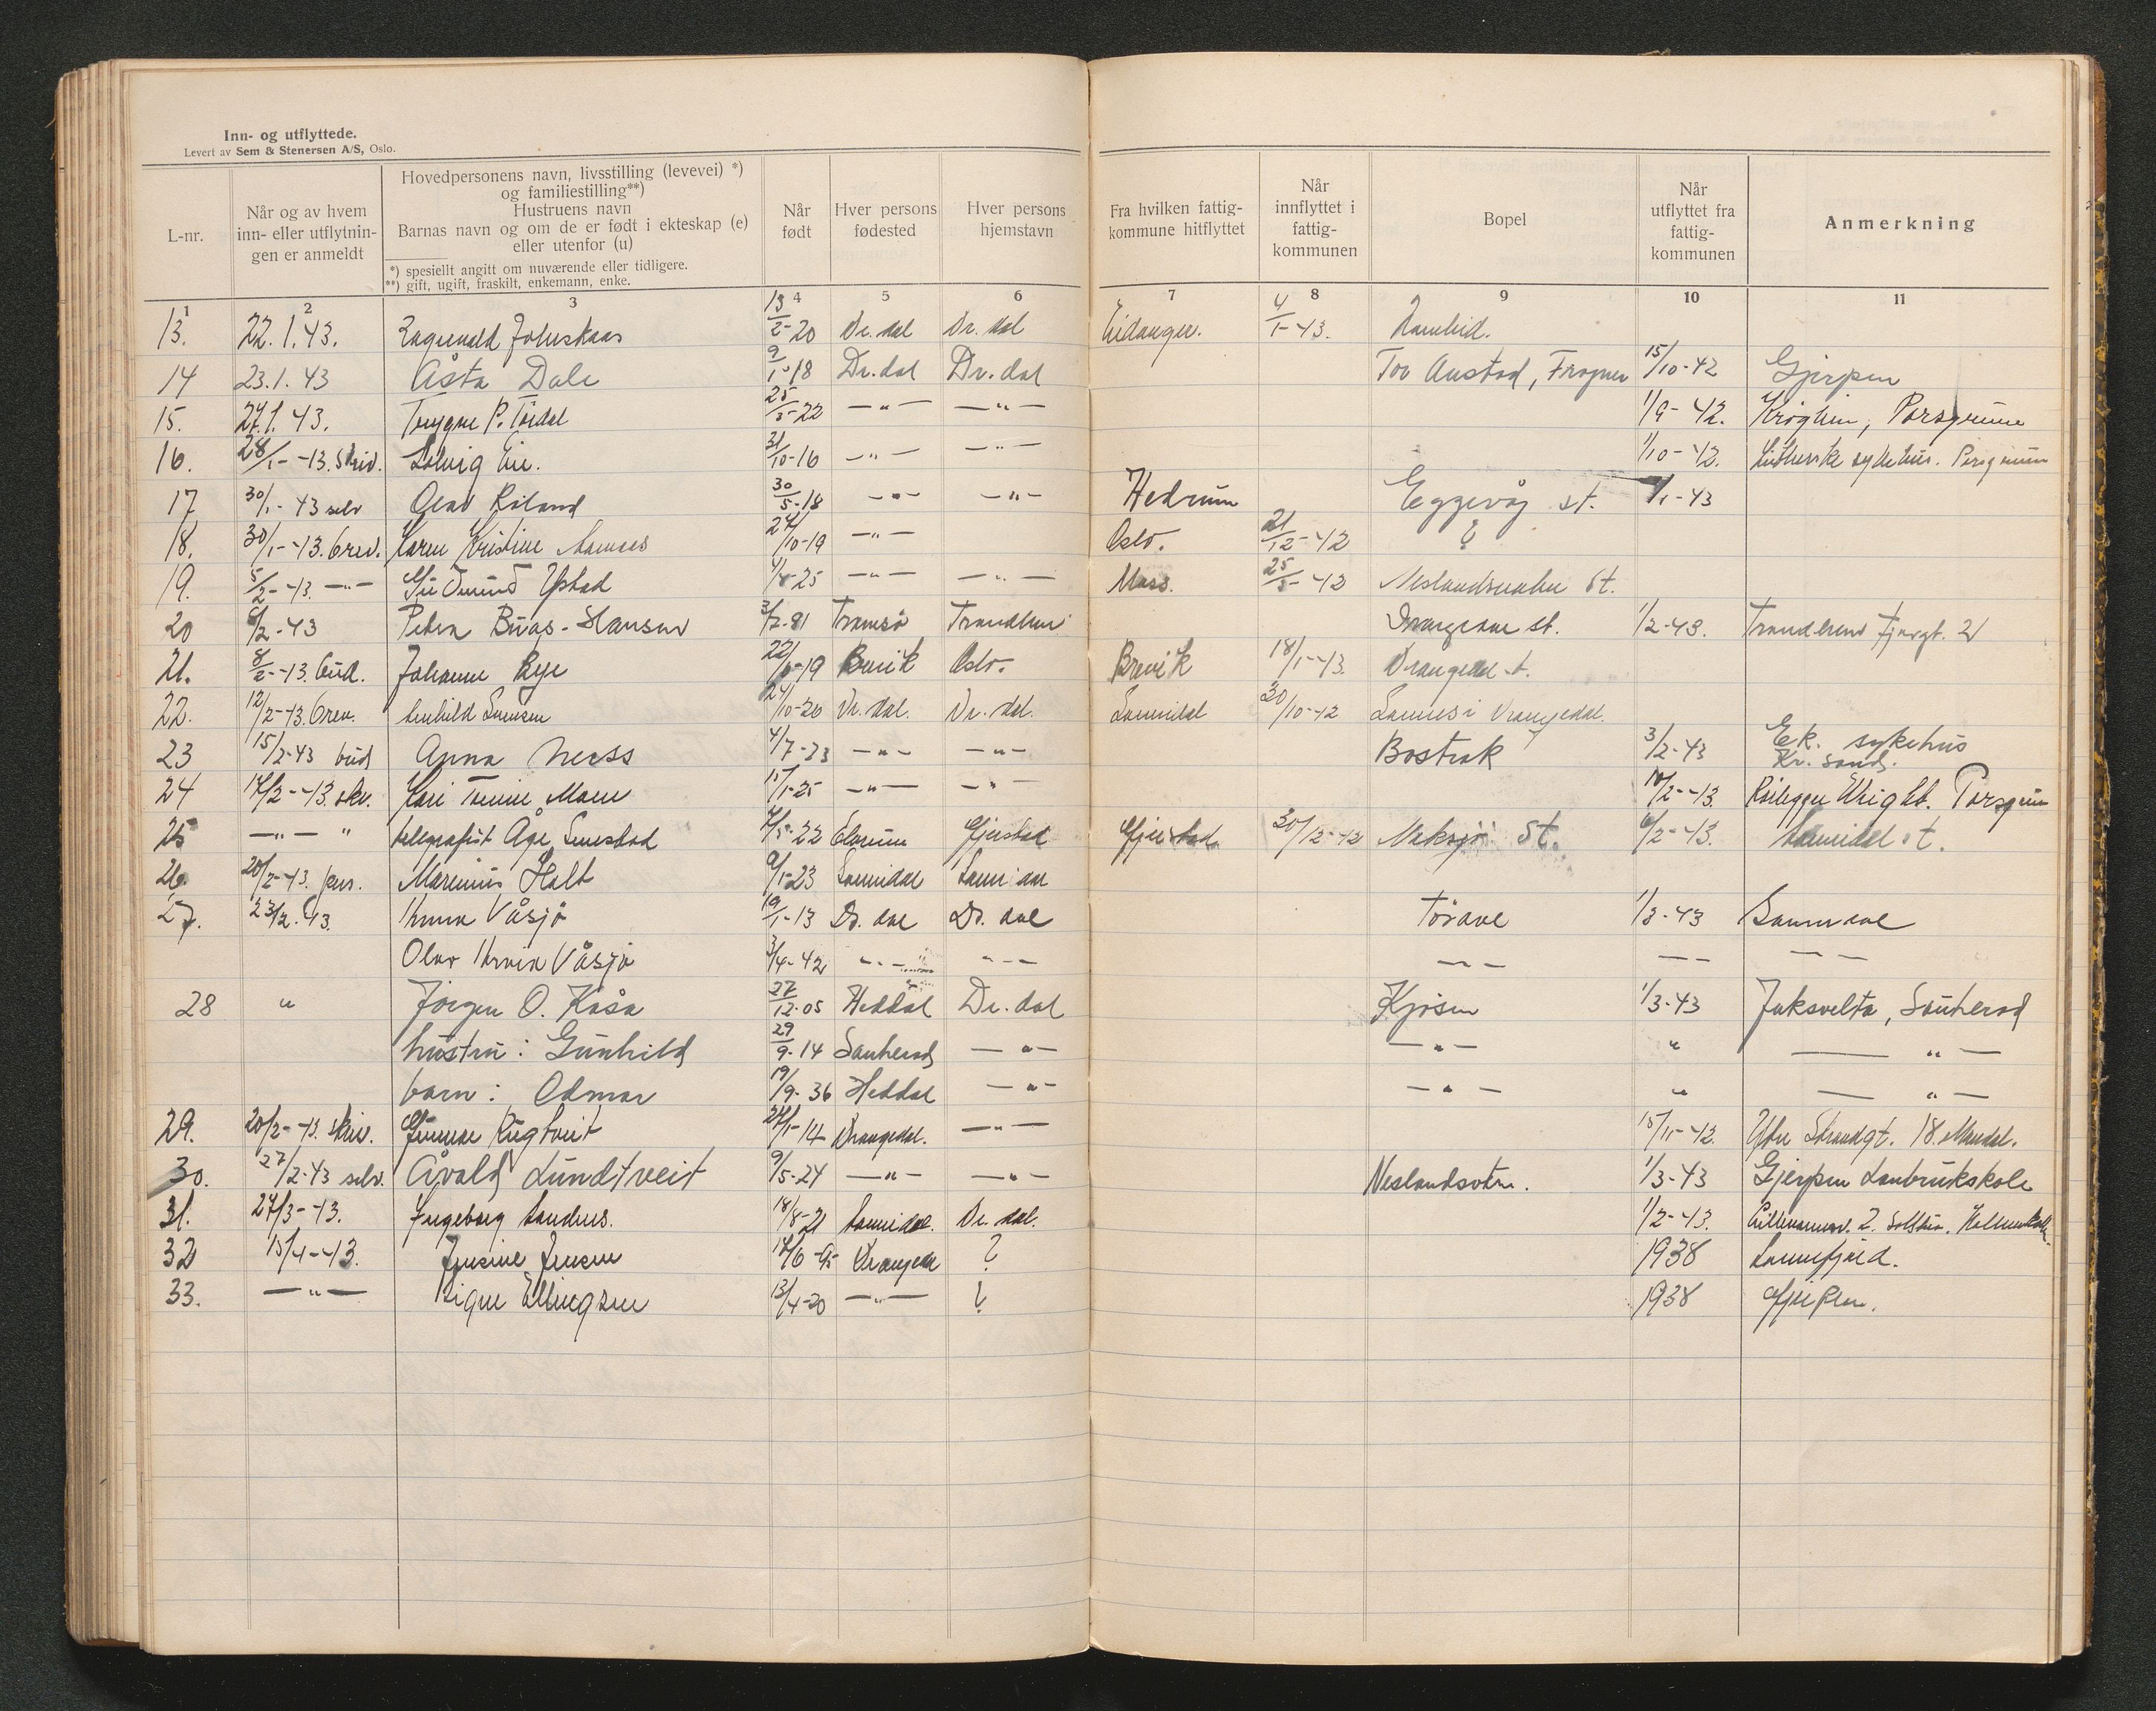 Inn- og utflyttede.
Levert av Sem & Stenersen A/S, Oslo.
L-nr.
Når og av hvem inn- eller utflytnin-gen er anmeldt
Hovedpersonens navn, livsstilling (levevei) *)
og familiestilling**)
Hustruens navn
Barnas navn og om de er født i ekteskap (e)
eller utenfor (u)
*) spesiellt angitt om nuværende eller tidligere.
**) gift, ugift, fraskilt, enkemann, enke.
Når født
Hver persons fødested
Hver persons hjemstavn
Fra hvilken fattig-kommune hitflyttet
Når innflyttet i fattig-kommunen
Bopel
Når utflyttet fra fattig-kommunen
Anmerkning
1 2 3 4 5 6 7 8 9 10 11
13. 22.1.43. 13/2-20 Dr. dal Dr. dal Eidanger. 4/1-43.
14 23.1.43 Åsta Dale 9/1-18 Dr. dal Dr. dal Tov Austad, Frogner 15/10-42 Gjerpen
15. 27.1.43. Trygve P. Tørdal 25/3-22 —"— —"— 1/9-42. Porsgrunn
16. 28/1-43. Skriv. Solveig 31/10-16 —"— —"— 1/10-42. Lutherske sykehus. Porsgrunn
17 30/1-43 selv Olav Röland 30/5-18 —"— —"— Hedrum Eggevåg st. 1/1-43
18. 30/1-43. brev. Karen Kristine 24/10-19 —"— Oslo. 21/12-42 ?
19. 5/2-43. —"— Ystad —"— —"— Moss. 25/5-42 Neslandsvatn St.
20 6/2-43 Petra Buås-Hansen 3/2-81 Tromsø Trondheim Drangedal st. 1/2-43. Trondheim Fjærgt. 2
21. 8/2-43. bud. Johanne Rye 22/6-19 Brevik Oslo. Brevik 18/1-43. Drangedal st.
22. 12/2-43. brev. 24/10-20 Dr. dal. Dr. dal. Sannidal 30/10-42 Drangedal.
23 15/2-43 bud Anna Ness 4/7-23 —"— —"— Bostrak 3/2-43 Ek. sykehus Kr. sand.
24 17/2-43. skr. Kari Tomine Moen 15/1-25 —"— —"— 10/2-43. Rørlegger Wright. Porsgrunn
25 —"— " telegrafist Åge 22 Elverum Gjerstad Gjerstad 30/12-42 Nakksjø St. 6/2-43. Sannidal st.
26. 20/2-43. pers. Marenius Holt 9/1-23 Sannidal Sannidal
27. 23/2.43. Våsjø 19/1-13 Dr. dal Dr. dal Tørdal 1/3-43 Sannidal
Olav Våsjø 3/4-42 —"— —"— —"— — — — —
28 " Jørgen O. Kåsa 27/12-05 Heddal Dr. dal Kjøsen 1/3-43 Juksvelta, Sauherad
hustru: Gunhild 29/9-14 Sauherad —"— —"— " —"—
barn: Odmar 19/9-36 Heddal —"— —"— " —"—
29. 20/2-43. skriv. Gunnar Rugtveit 24/1-14 Drangedal. —"— 15/11-42. Ytre Strandgt. 18. Mandal.
30. 27/2-43 selv. Åvald Lundtveit 9/5-24 —"— —"— Neslandsvatn. 1/3-43 Gjerpen Landbrukskole
31. 24/3-43. Ingeborg Sandnes. 18/8-21 Sannidal. Dr. dal. 1/2-43.
32 15/4-43. Jensine Jensen Drangedal ? 1938 Sannefjord.
33. —"— Signe Ellingsen 13/4-20 —"— ? 1938 Gjerpen.